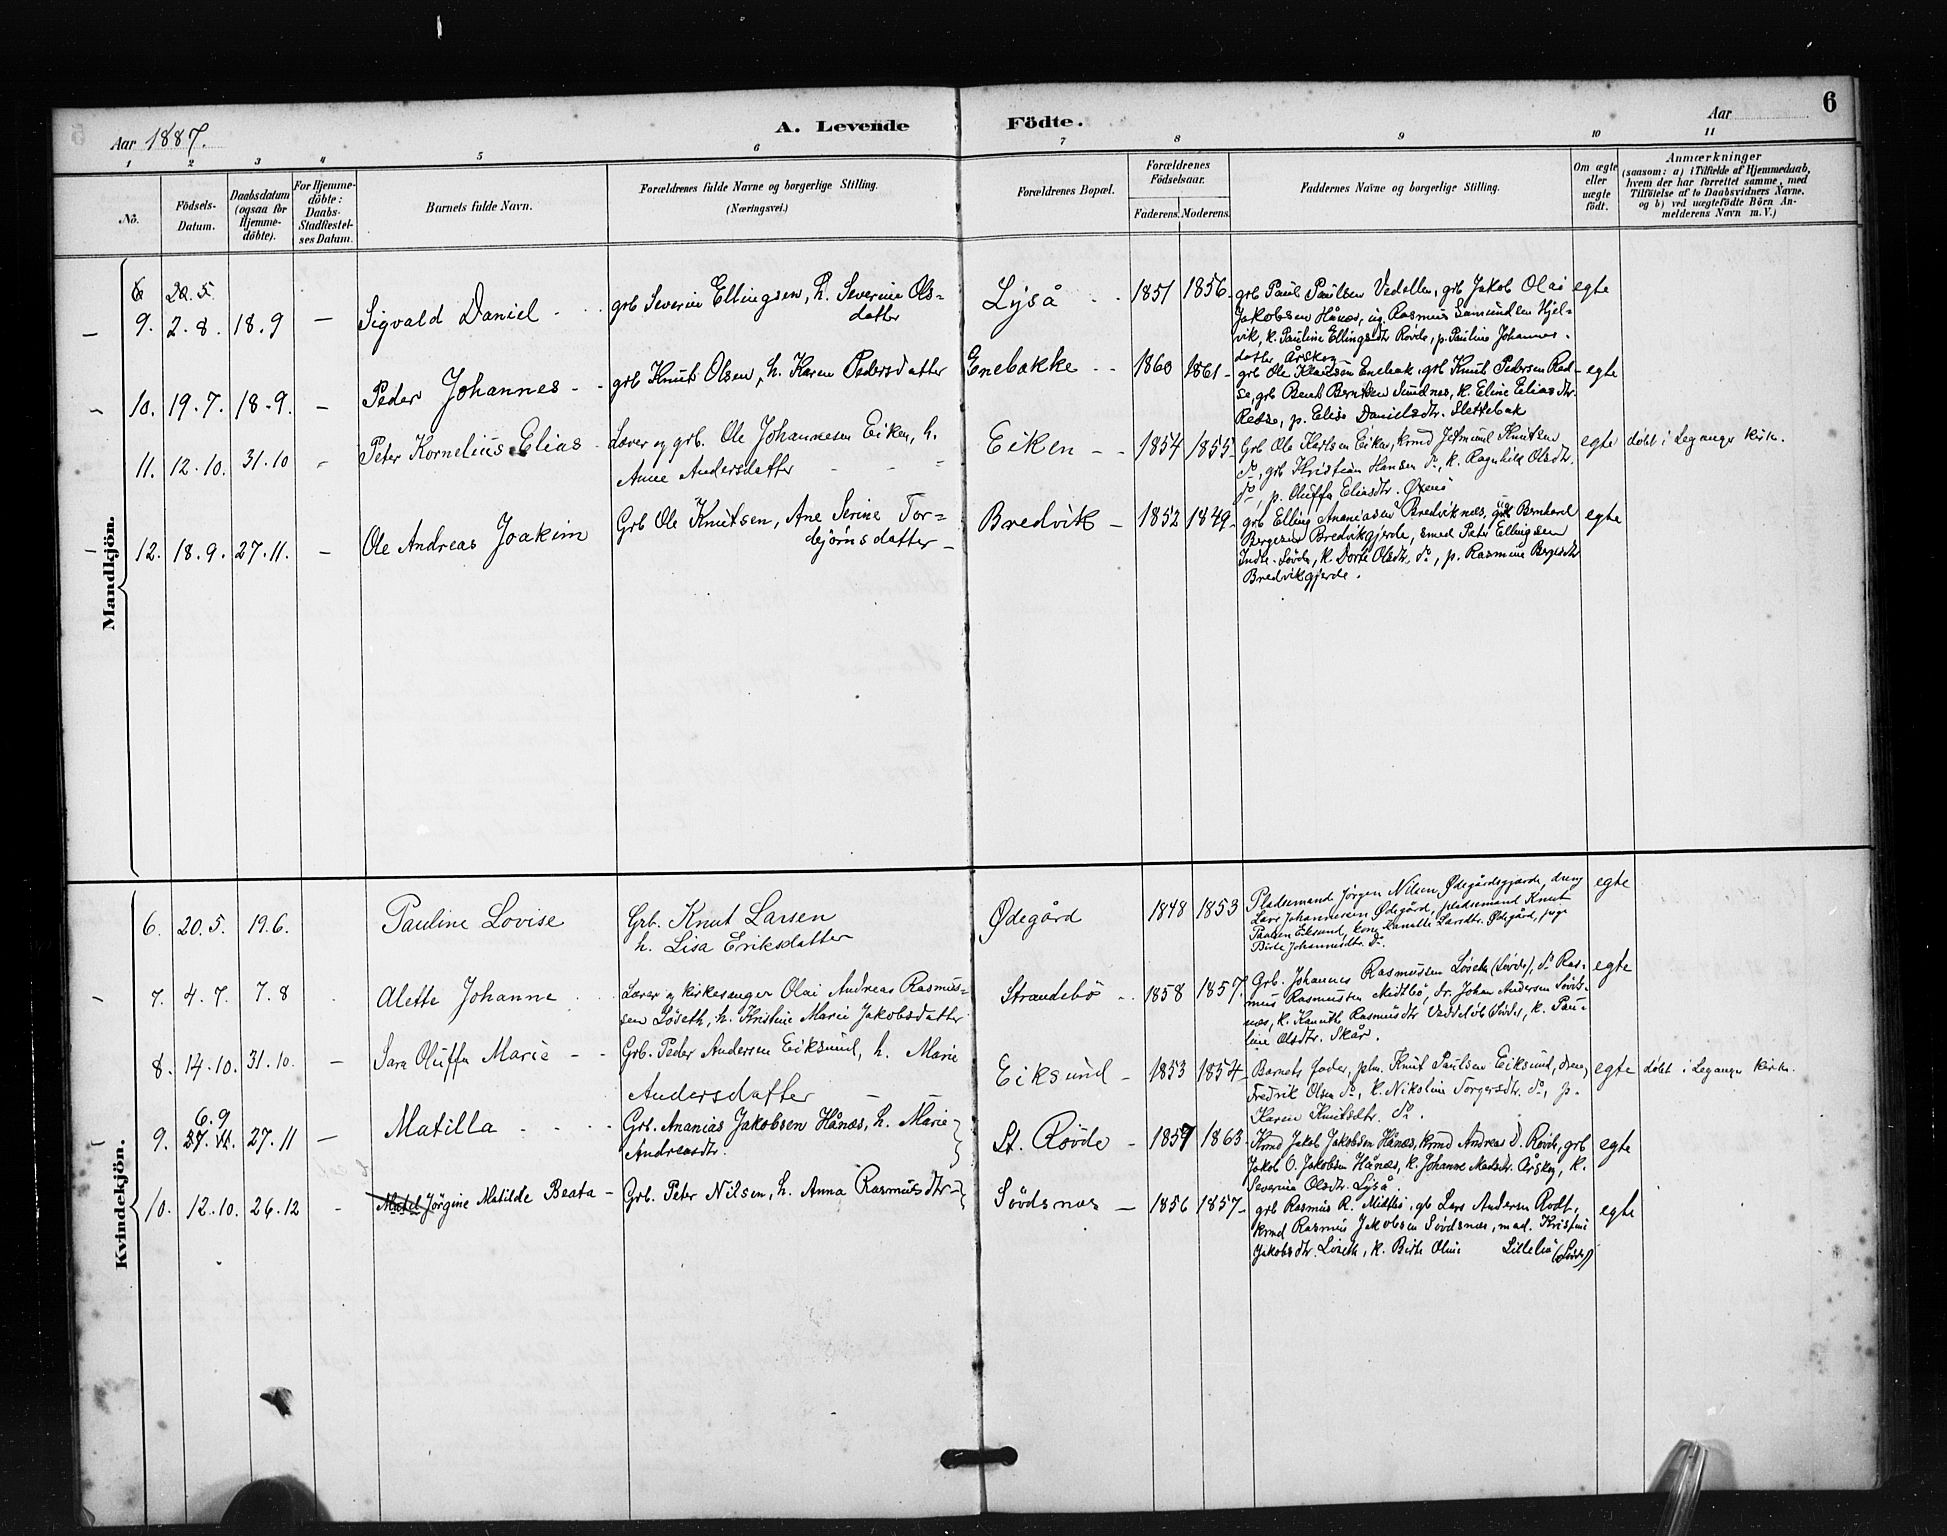 Aar 1887.
A. Levende Födte.
Aar
6
1 2 3 4 5 6 7 8 9 10 11
Nö.
Födsels-Datum.
Daabsdatum (ogsaa för Hjemme-döbte).
For Hjemme-döbte: Daabs-Stadfæstel-ses Datum.
Barnets fulde Navn.
Forældrenes fulde Navne og borgerlige Stilling.
(Næringsvei.)
Forældrenes Bopæl.
Forældrenes Födselsaar.
Faderens. Moderens.
Faddernes Navne og borgerlige Stilling.
Om ægte eller uægte födt.
Anmærkninger
(saasom: a) i Tilfælde af Hjemmedaab,
hvem der har forrettet samme, med
Tilföielse af to Daabsvidners Navne,
og b) ved uægtefödte Börn An-
melderens Navn m. V.)
Mandkjön.
6 20.5
9. 2.8. 18.9 — Sigvald Daniel - grb Severin Ellingsen, h. Severine Ols=
datter
Lyså - - 1851 1856 egte
grb Paul Paulsen Vedelden, grb Jakob Olai
Jakobsen Hånæs, ug. Rasmus Samundsen Hjel-
vik, k. Pauline Ellingsdtr Rovde, p. Pauline Johannes-
datter Årskog
10. 19.7. 18.9. — Peder Johannes - - grb Knut Olsen, h. Karen Pedersdatter
Enebakke - - 1860 1861 - egte
grb Ole Enebak, grb Knut Pedersen Red-
se, grb Bent Berntsen Sundnes, k. Eline Eliasdtr.
Redse, p. Elise Danielsdtr. Slettebak
11. 12.10. 31.10 - Peter Kornelius Elias - Lærer og grb. Ole Johannesen Eiken, h.
Anne Andersdatter - - -
Eiken - - 1854 1855 egte döbt i Leganger kirke.
Grb Ole Karlsen Eiken, krmd Jetmund Knutsen
do, grb Kristian Hansen do, k. Ragnhild Olsdtr.
do, p. Oluffa Eliasdtr.
12. 18.9. 27.11. — Ole Andreas Joakim Grb Ole Knutsen, Ane Serine Tor=
björnsdatter -
Bredvik - 1852 1849 - egte
grb Elling Ananiasen Bredviknes, Bernhard
Bergesen Bredvikgjerde, smed Peter Ellingsen
Indre-Søvde, k. Dorte Olsdtr. do, p. Rasmine Bergesdtr
Bredvikgjerde.
Kvindekjön.
6. 20.5. 19.6. Pauline Lovise Grb. Knut Larsen
h. Lisa Eriksdatter
Ødegård 1848 1853 egte
Pladsemand Jørgen Nilsen Ødegårdsgjærde, dreng
Lars Johannessen Ødegård, pladsemand Knut
Paulsen Eiksund, kone Larsdtr. Ødegård, pige
Birte Johannesdtr. do
7. 4.7. 7.8 Alette Johanne - - Lærer og kirkesanger Olai Andreas Rasmus=
sen Løseth, h. Kristine Marie Jakobsdatter
Strandebö - 1858 1857. egte
Grb. Johannes Rasmussen Løseth (Søvde), do Ras-
mus Rasmussen Midtbö, dr. Johan Andersen Søvds-
næs, k. Rasmusdtr, k. Pau-
line Olsdtr. Skår.
8. 14.10. 31.10. — Sara Oluffa Marie - - Grb. Peder Andersen Eiksund, h. Marie
Andersdatter - -
Eiksund - 1853 1854 - egte döbt i Leganger kirke.
Barnets fader, plm. Knut Paulsen Eiksund, dreng
Fredrik Olsen do, k. Nikoline Torgersdtr. do, p.
Karen Knutsdtr. do.
6.9
9. 27.11. 27.11 — Matilla - - - Grb. Ananias Jakobsen Hånæs, h. Marie
Andreasdtr.
St. Røvde - 1857 1863 egte
Krmd Jakob Jakobsen Hånæs, krmd Andreas D. Røvde, grb
Jakob O. Jakobsen Hånæs, k. Johanne Madsdtr. Årskog, k.
Severine Olsdtr. Lyså.
10. 12.10. 26.12 - Jörgine Matilde Beata - Grb. Peter Nilsen, h. Anna Rasmusdtr -
Søvdsnæs - 1856 1857 - egte
grb Rasmus R. Midtbö, grb Lars Andersen Rodt,
krmd Rasmus Jakobsen Søvdsnæs, mad. Kristine
Jakobsdtr. Løseth, k. Birte Oline Lillebö (Søvde)